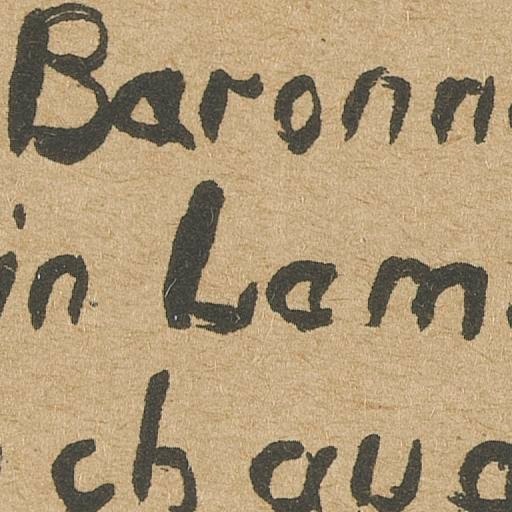 Baronn
in Lam
ch au